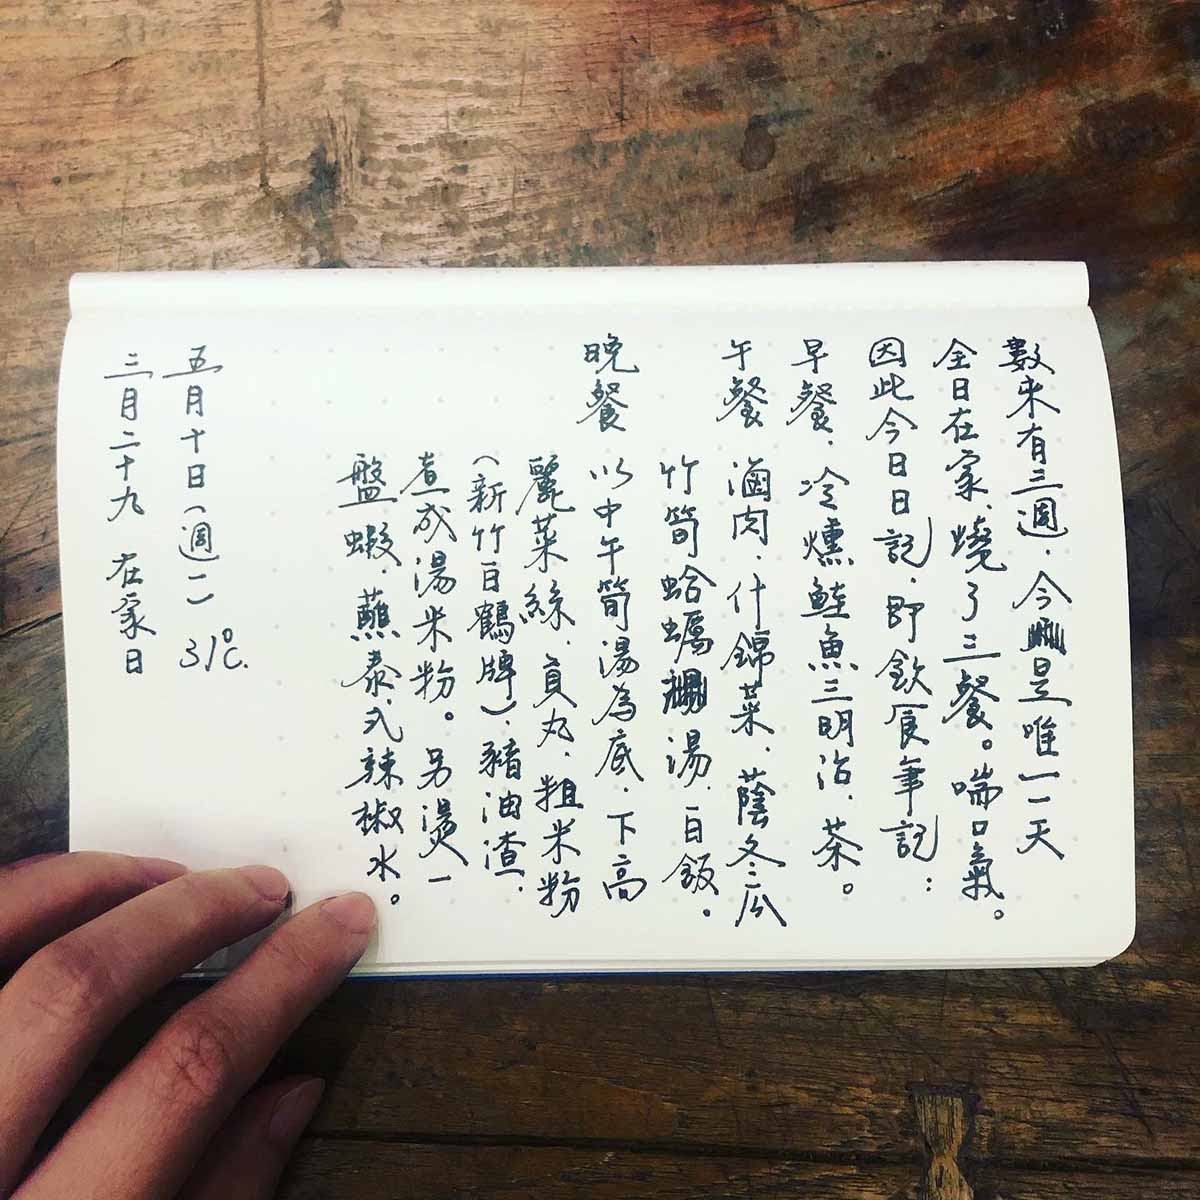 數來有三週、今是唯一一天
全日在家、燒了三餐。喘口氣。
因此今日日記、即飲食筆記：
早餐、冷燻鮭魚三明治、茶。
午餐 滷肉、什錦菜、蔭冬瓜
竹筍蛤蠣湯、白飯。
晚餐 以中午筍湯為底、下高
麗菜絲、貢丸、粗米粉
（新竹白鶴牌）、豬油渣、
煮成湯米粉。另燙一
盤蝦、蘸泰式辣椒水。
五月十日（週一） 31°C.
三月二十九 在家日